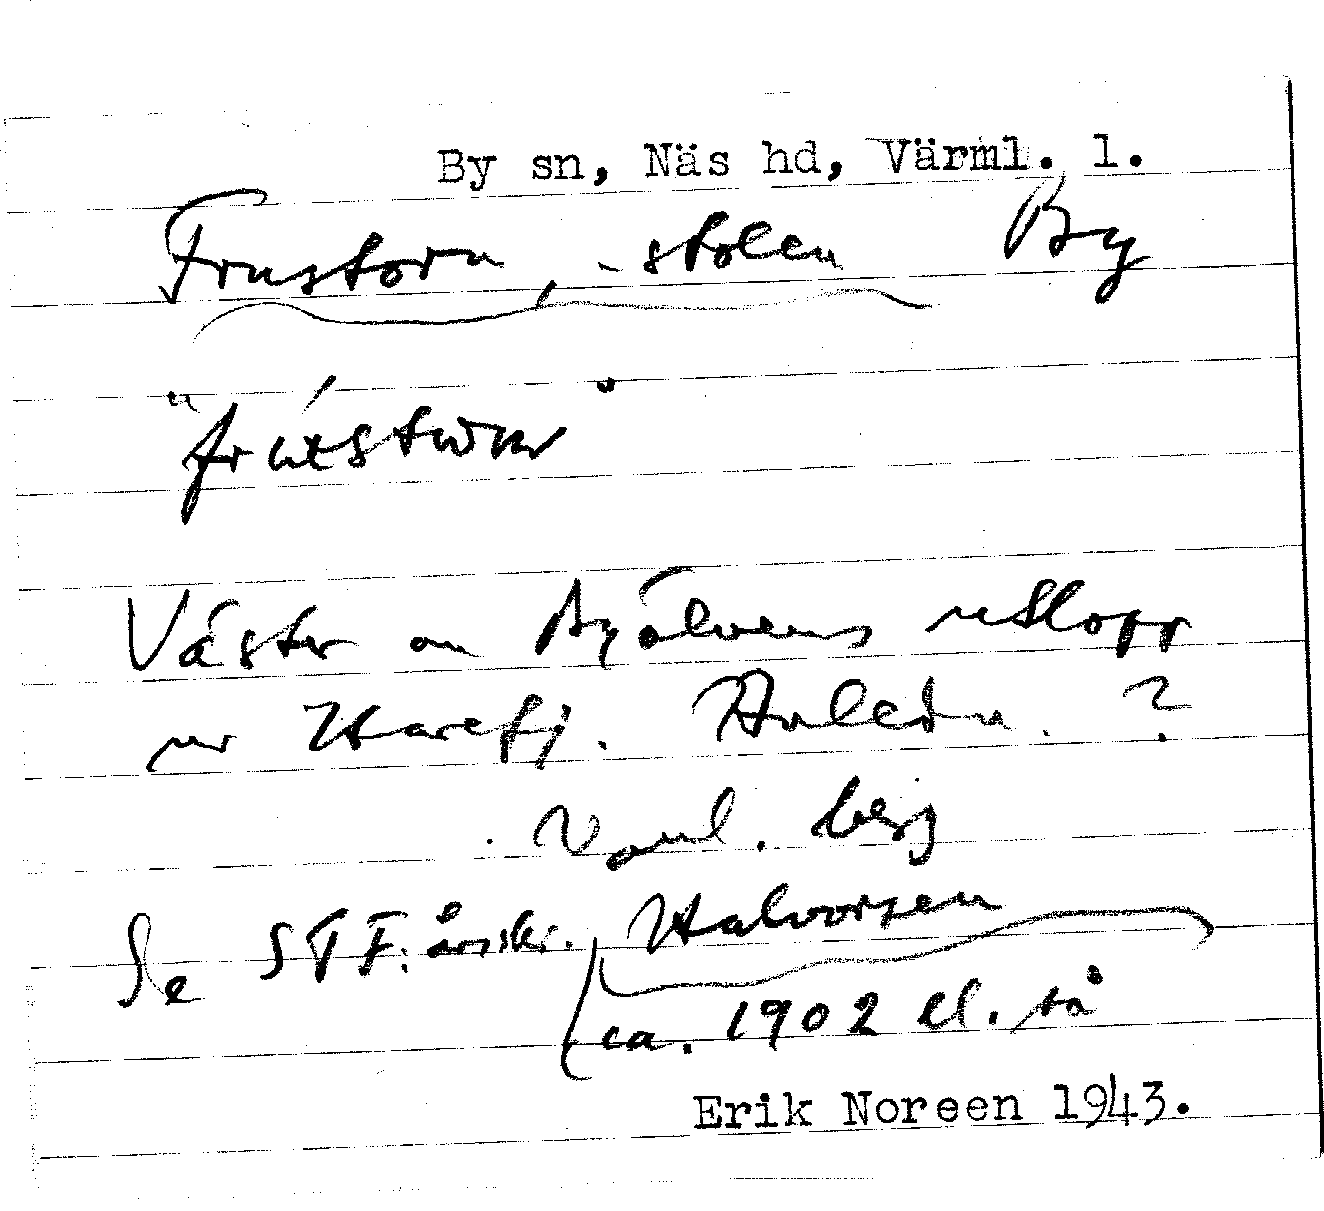 By sn, Näs hd, Värml. l.
Frustorn, -stolen By
"
Väster om Byälvens utlopp
ur Harefj. ?
Vanl. berg
Se STF:s årsskr. Halvorsen
(ca. 1902 el. så
Erik Noreen 1943.